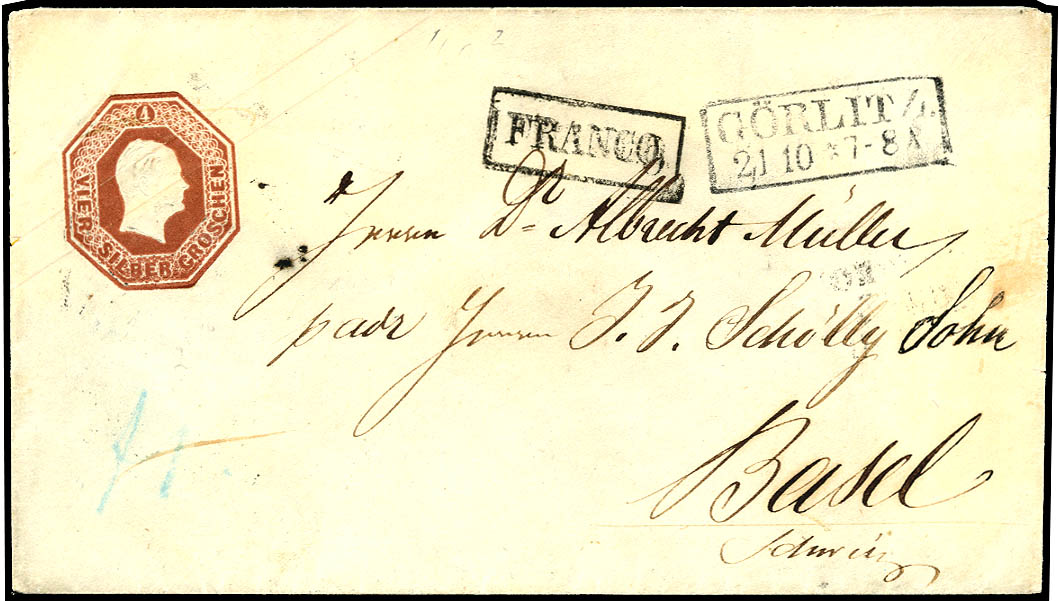 4
VIER SILBER GROSCHEN
FRANCO.
GÖRLITZ
21 10 *7-8
Herrn Dr Albrecht Müller
Herrn J. J. Schölly Sohn
Basel
Schweiz